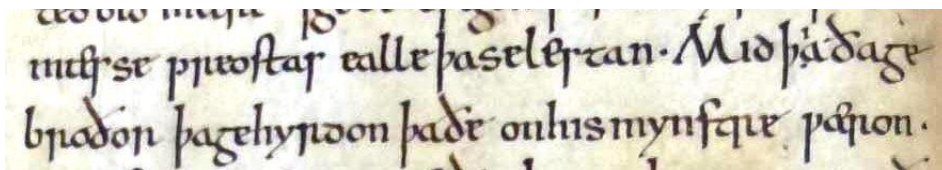 mæsse preostas ealle þaselestan· Mid þa ðage
broðor þagehyrdon þaðe onhismynstre ƿæron·